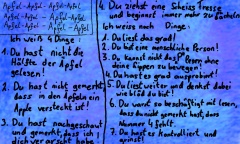 Apfel - Apfel - Apfel - Apfel
Apfel - Apfel - Apfel - Apfel
Apfel - Apfel - Apfel - Apfel
Ich weiß 4 Dinge:
1. Du hast nicht die
Hälfte der Apfel
gelesen!
2. Du hast nicht gemerkt
dass in den äpfeln ein
Apple versteckt ist!
3. Du hast nachgeschaut
und gemerkt, dass ich
dich verarscht habe
4. Du ziehst eine Scheiss Fresse
und beginnst immer mehr zu lächeln
Ich weiss noch Dinge:
1. Du liest das grad!
2. Du bist eine menschliche Person!
3. Du kannst nicht das P lesen ohne
deine Lippen zu bewegen!
4. Du hast es grad ausprobiert!
5. Du liest weiter und denkst dabei
wie blöd du bist!
6. Du warst so beschäftigt mit lesen,
dass du nicht gemerkt hast, dass
Nummer 4 fehlt.
7. Du hast es kontrolliert und
grinst!